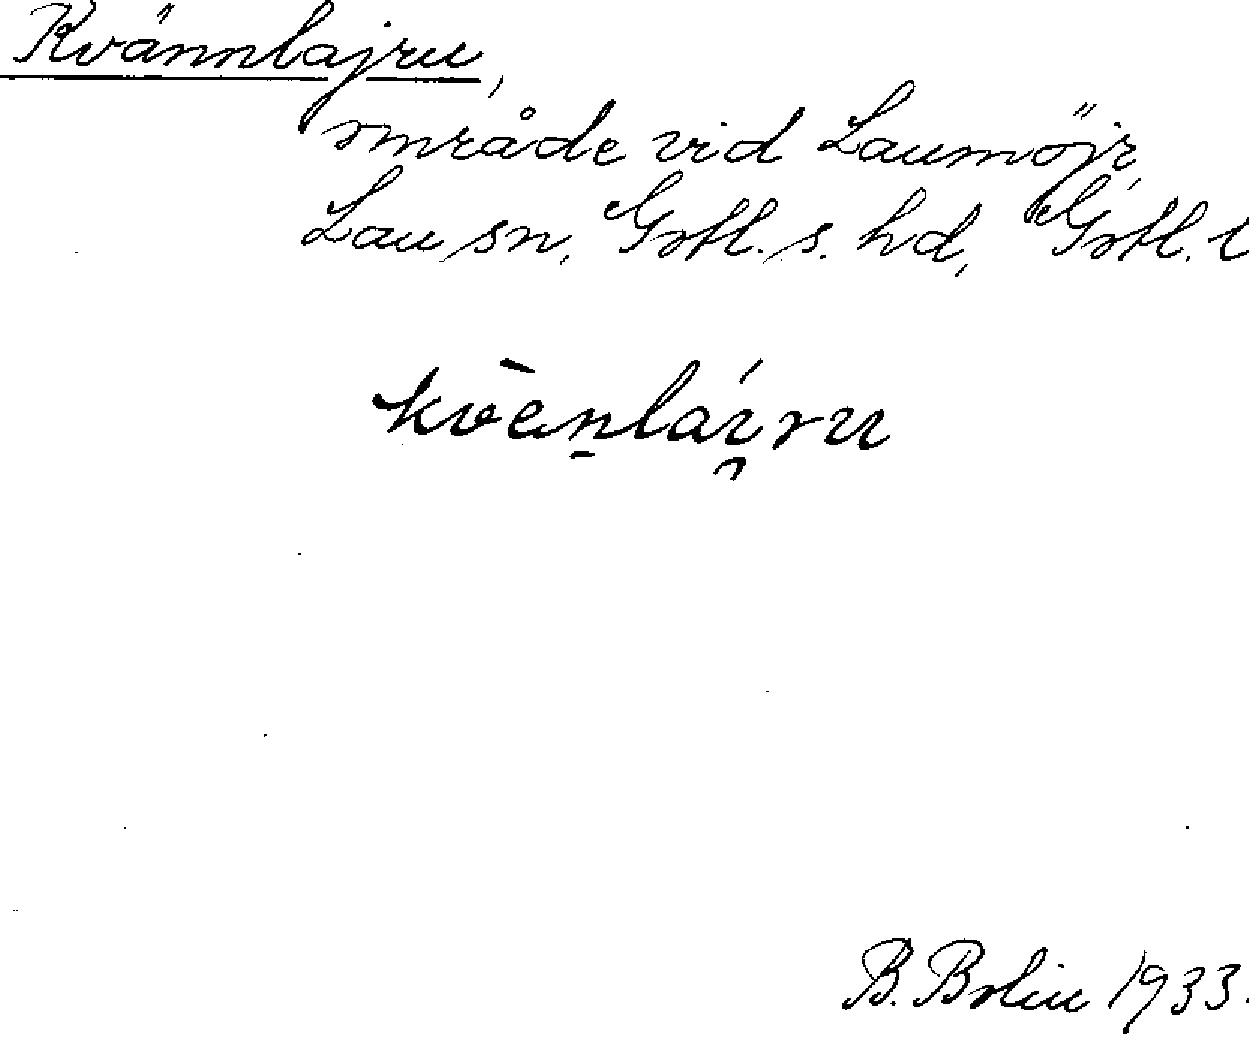 Kvännlajru,
område vid Laumöjr,
Lau sn, Gotl. s. hd, Gotl. l
kvèn̠lái̯ru
B. Bolin 1933.